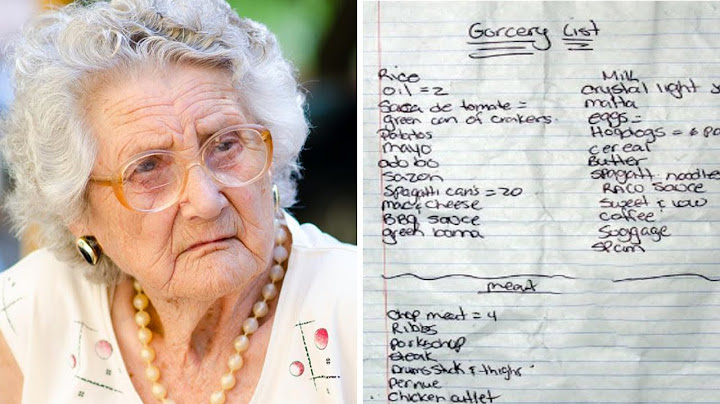 Gorcery List
Rice
oil = 2
Salsa de tomate =
green can of crakers.
Potatos
mayo
adobo
sazon
Spagatti can's = 20
mac & cheese
BBQ sauce
green bana
Milk
crystal light
malta
eggs =
Hopdogs = 6
cereal
Butter
spagatt. noodles
RACO sauce
Sweet & low
coffee
Suggage
spam
meat
chop meat = 4
Ribbs
porkschop
steak
Drums stick & thighs
pernue
chicken cutlet